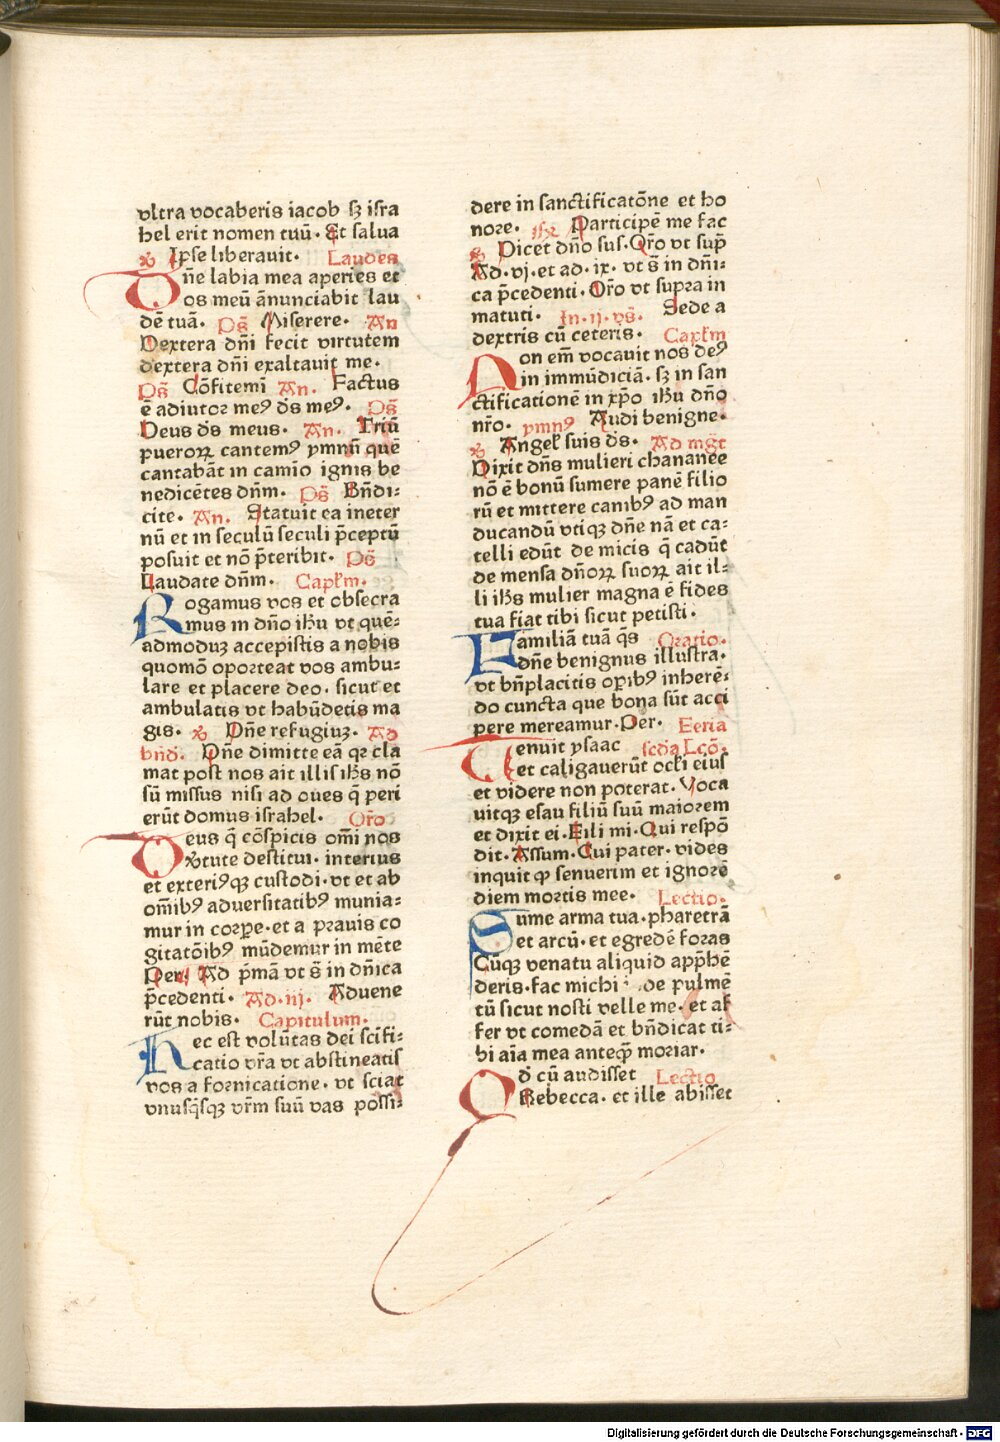 vltra vocaberis iacob sꝫ isra
hel erit nomen tuū. Et salua
℟ Ipse liberauit. Laudes
Dn̄e labia mea aperies et
os meū ān̄unciabit lau
dē tuā. Ps̄ Miserere. An
Dextera dn̄i fecit virtutem
dextera dn̄i exaltauit me.
Ps̄ Cōfitemi An. Factus
ē adiutor meꝰ ds̄ meꝰ. Ps̄
Deus ds̄ meus. An. Triū
pueroꝝ cantemꝰ ymnū quē
cantabāt in camio ignis be
nedicētes dn̄m. Ps̄ Bn̄di⸗
cite. An. Statuit ea ineter
nū et in seculū seculi p̄ceptū
posuit et nō p̄teribit. Ps̄
Laudate dn̄m. Capl̄m.
Rogamus vos et obsecra
mus in dn̄o ih̄u vt quē⸗
admoduꝫ accepistis a nobis
quomō oporteat vos ambu⸗
lare et placere deo. sicut et
ambulatis vt habūdetis ma
gis. ℟ Dn̄e refugiuꝫ. Ad
bn̄d. Dn̄e dimitte eā qꝛ cla
mat post nos ait illis ih̄s nō
sū missus nisi ad oues q̄ peri
erūt domus israhel. Or̄o
Deus q̄ cōspicis om̄i nos
v̄tute destitui. interius
et exteriꝰqꝫ custodi. vt et ab
om̄ibꝰ aduersitatibꝰ munia⸗
mur in corꝑe. et a prauis co
gitatōibꝰ mūdemur in mēte
Per. Ad p̄mā vt s̄ in dn̄ica
p̄cedenti. Ad. iij. Aduene
rūt nobis. Capitulum.
Hec est volūtas dei scīfi⸗
catio vr̄a vt abstineatis
vos a fornicatione. vt sciat
vnusq̄sqꝫ vr̄m suū vas possi⸗
dere in sanctificatōne et ho
nore. Participē me fac
℟ Dicet dn̄o sus. Or̄o vt sup̄
Ad. vj. et ad. ix. vt s̄ in dn̄i⸗
ca p̄cedenti. Or̄o vt supra in
matuti. In. ij. vs̄. Sede a
dextris cū ceteris. Capl̄m
Non em̄ vocauit nos deꝰ
in immūdiciā. sꝫ in san
ctificationē in xp̄o ih̄u dn̄o
nr̄o. ymnꝰ Audi benigne.
℟ Angel̄ suis ds̄. Ad mgt
Dixit dn̄s mulieri chananee
nō ē bonū sumere panē filio
rū et mittere canibꝰ ad man
ducandū vtiqꝫ dn̄e nā et ca⸗
telli edūt de micis q̄ cadūt
de mensa dn̄oꝝ suoꝝ ait il⸗
li ih̄s mulier magna ē fides
tua fiat tibi sicut petisti.
Familiā tuā q̄s Oratio.
dn̄e benignus illustra.
vt bn̄placitis oꝑibꝰ inherē⸗
do cuncta que bona sūt acci
pere mereamur. Per. Feria
Tenuit ysaac scd̄a Lcō.
et caligauerūt ocl̄i eius
et videre non poterat. Voca
uitqꝫ esau filiū suū maiorem
et dixit ei. Fili mi. Qui respō
dit. Assum. Cui pater. vides
inquit ꝙ senuerim et ignorē
diem mortis mee. Lectio.
Sume arma tua. pharetrā
et arcū. et egredē foras
Cūqꝫ venatu aliquid app̄hē
deris. fac michi de pulmē
tū sicut nosti velle me. et af
fer vt comedā et bn̄dicat ti⸗
bi aīa mea anteqꝫ moriar.
Qd̄ cū audisset Lectio
Rebecca. et ille abisset
Digitalisierung gefördert durch die Deutsche Forschungsgemeinschaft - DFG